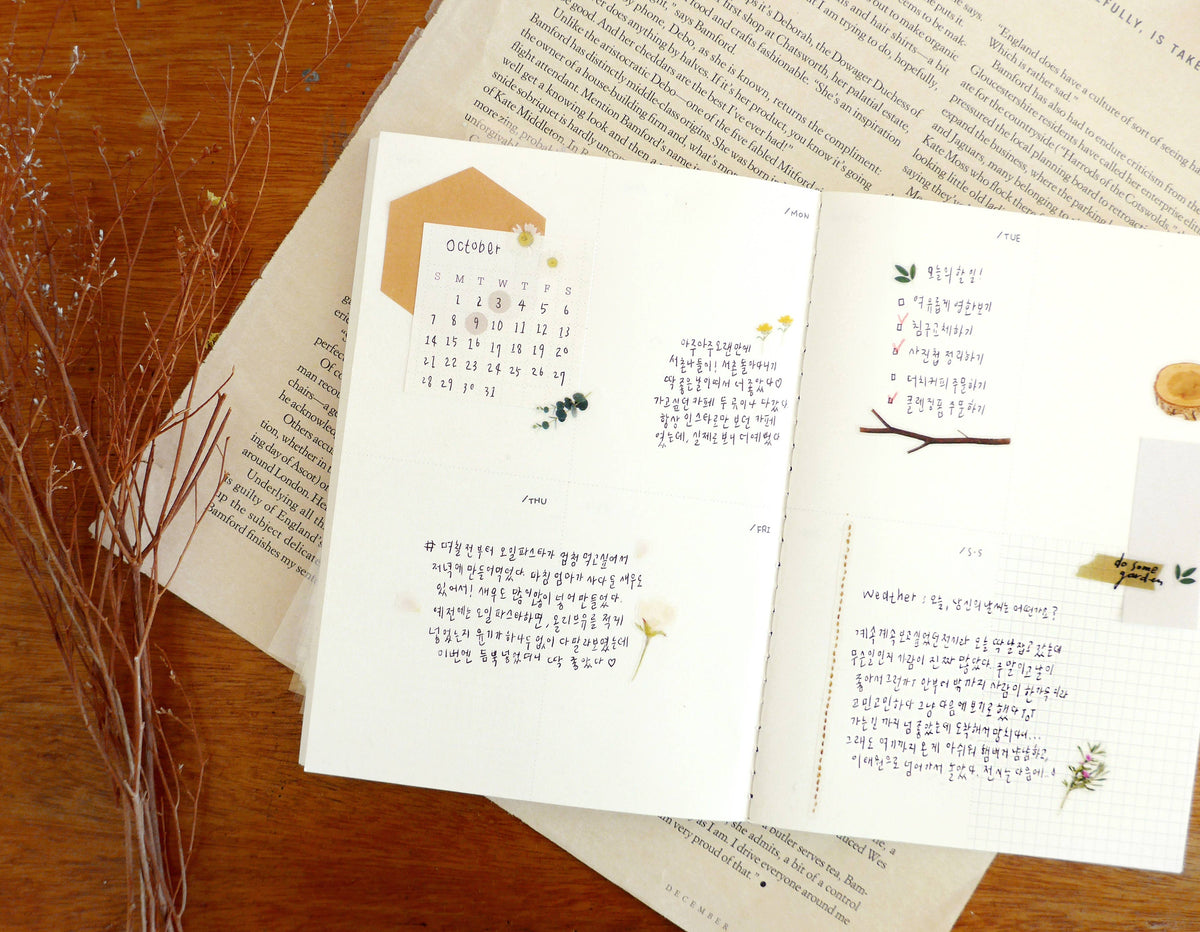 FULLY, IS TAKE
"England does have a culture of sort of seeing
Which is rather sad."
Bamford has also had to endure criticism from the
Gloucestershire residents have called her enterprise elit
ate for the countryside ("Harrods of the Cotswolds,"
pressured the local planning board to retroacti
expand the business, where the parking
and Jaguars, many belonging to
Kate Moss who flock there
looking little old lad
saying they've
out to make organic
and hair shirts—a bit
I am trying to do, hopefully,
food and crafts fashionable. "She's an inspiration
first shop at Chatsworth, her palatial estate,
it's Deborah, the Dowager Duchess of
by phone, Debo, as she is known, returns the compliment:
does anything by halves. If it's her product, you know it's going
good. And her cheddars are the best I've ever had!"
Unlike the aristocratic Debo—one of the five fabled Mitford
Bamford has distinctly middle-class origins. She was born in
the owner of a house-building firm and, what's more
flight attendant. Mention Bamford's name in
well get a knowing look and then a
snide sobriquet is hardly uncom
of Kate Middleton. In
more zing, probab
unforgivin
perfec
man recou
chairs—a ge
he acknowled
Others accu
tion, whether in t
ing day of Ascot) o
around London. He
Underlying all th
is guilty of England's
up the subject delicate
Bamford finishes my sent
October
S M T W T F S
1 2 3 4 5 6
7 8 9 10 11 12 13
14 15 16 17 18 19 20
21 22 23 24 25 26 27
28 29 30 31
/MON
아주아주 오랜만에
서촌나들이! 서촌 돌아다니기
딱 좋은날이여서 더 좋았다♡
가고싶던 카페 두 곳이나 다갔다
항상 인스타로만 보던 카페
였는데, 실제로 보니 더 예뻤다
/TUE
오늘의 할 일!
여유롭게 영화보기
침구교체하기
사진첩 정리하기
더치커피 주문하기
클렌징폼 주문하기
/THU
# 며칠 전부터 오일파스타가 엄청 먹고싶어서
저녁에 만들어먹었다. 마침 엄마가 사다둔 새우도
있어서! 새우도 많이많이 넣어 만들었다.
예전에는 오일파스타하면, 올리브유를 적게
넣었는지 윤기가 하나두없이 다 말라보였는데
이번엔 듬뿍 넣었더니 딱 좋았다♡
/FRI
/S.S
do some
garden
Weather : 오늘, 당신의 날씨는 어떤가요?
계속계속 보고싶었던 전시라 오늘 딱 날잡고 갔는데
무슨일인지 사람이 진짜 많았다. 주말이고 날이
좋아서 그런가? 안부터 밖까지 사람이 한가득이라
고민고민하다 그냥 다음에 보기로 했다 ToT
가는길까지 넘 좋았는데 도착해서 멈칫
그래도 여기까지 온게 아쉬워 햄버거 냠냠하고,
이태원으로 넘어가서 놀았다. 전시는 다음에..!
a butler serves tea, Bam-
she admits, a bit of a control
as I am. I drive everyone around me
very proud of that." ●
DECEMBER